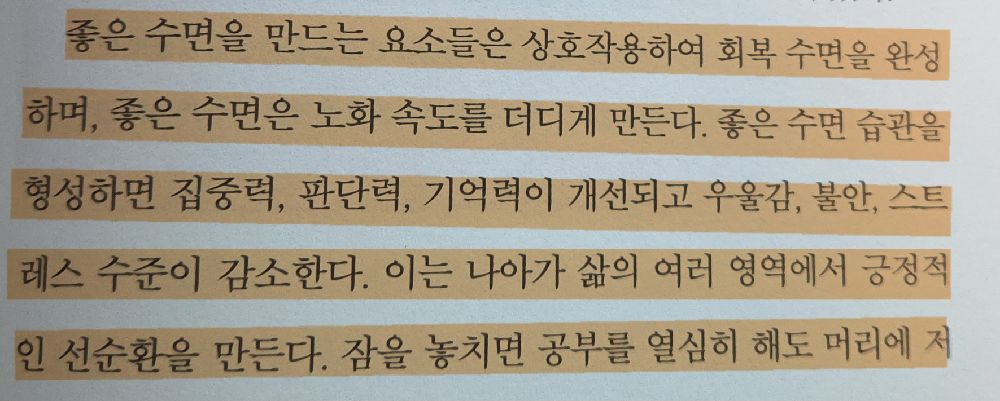 좋은 수면을 만드는 요소들은 상호작용하여 회복 수면을 완성
하며, 좋은 수면은 노화 속도를 더디게 만든다. 좋은 수면 습관을
형성하면 집중력, 판단력, 기억력이 개선되고 우울감, 불안, 스트
레스 수준이 감소한다. 이는 나아가 삶의 여러 영역에서 긍정적
인 선순환을 만든다. 잠을 놓치면 공부를 열심히 해도 머리에 저